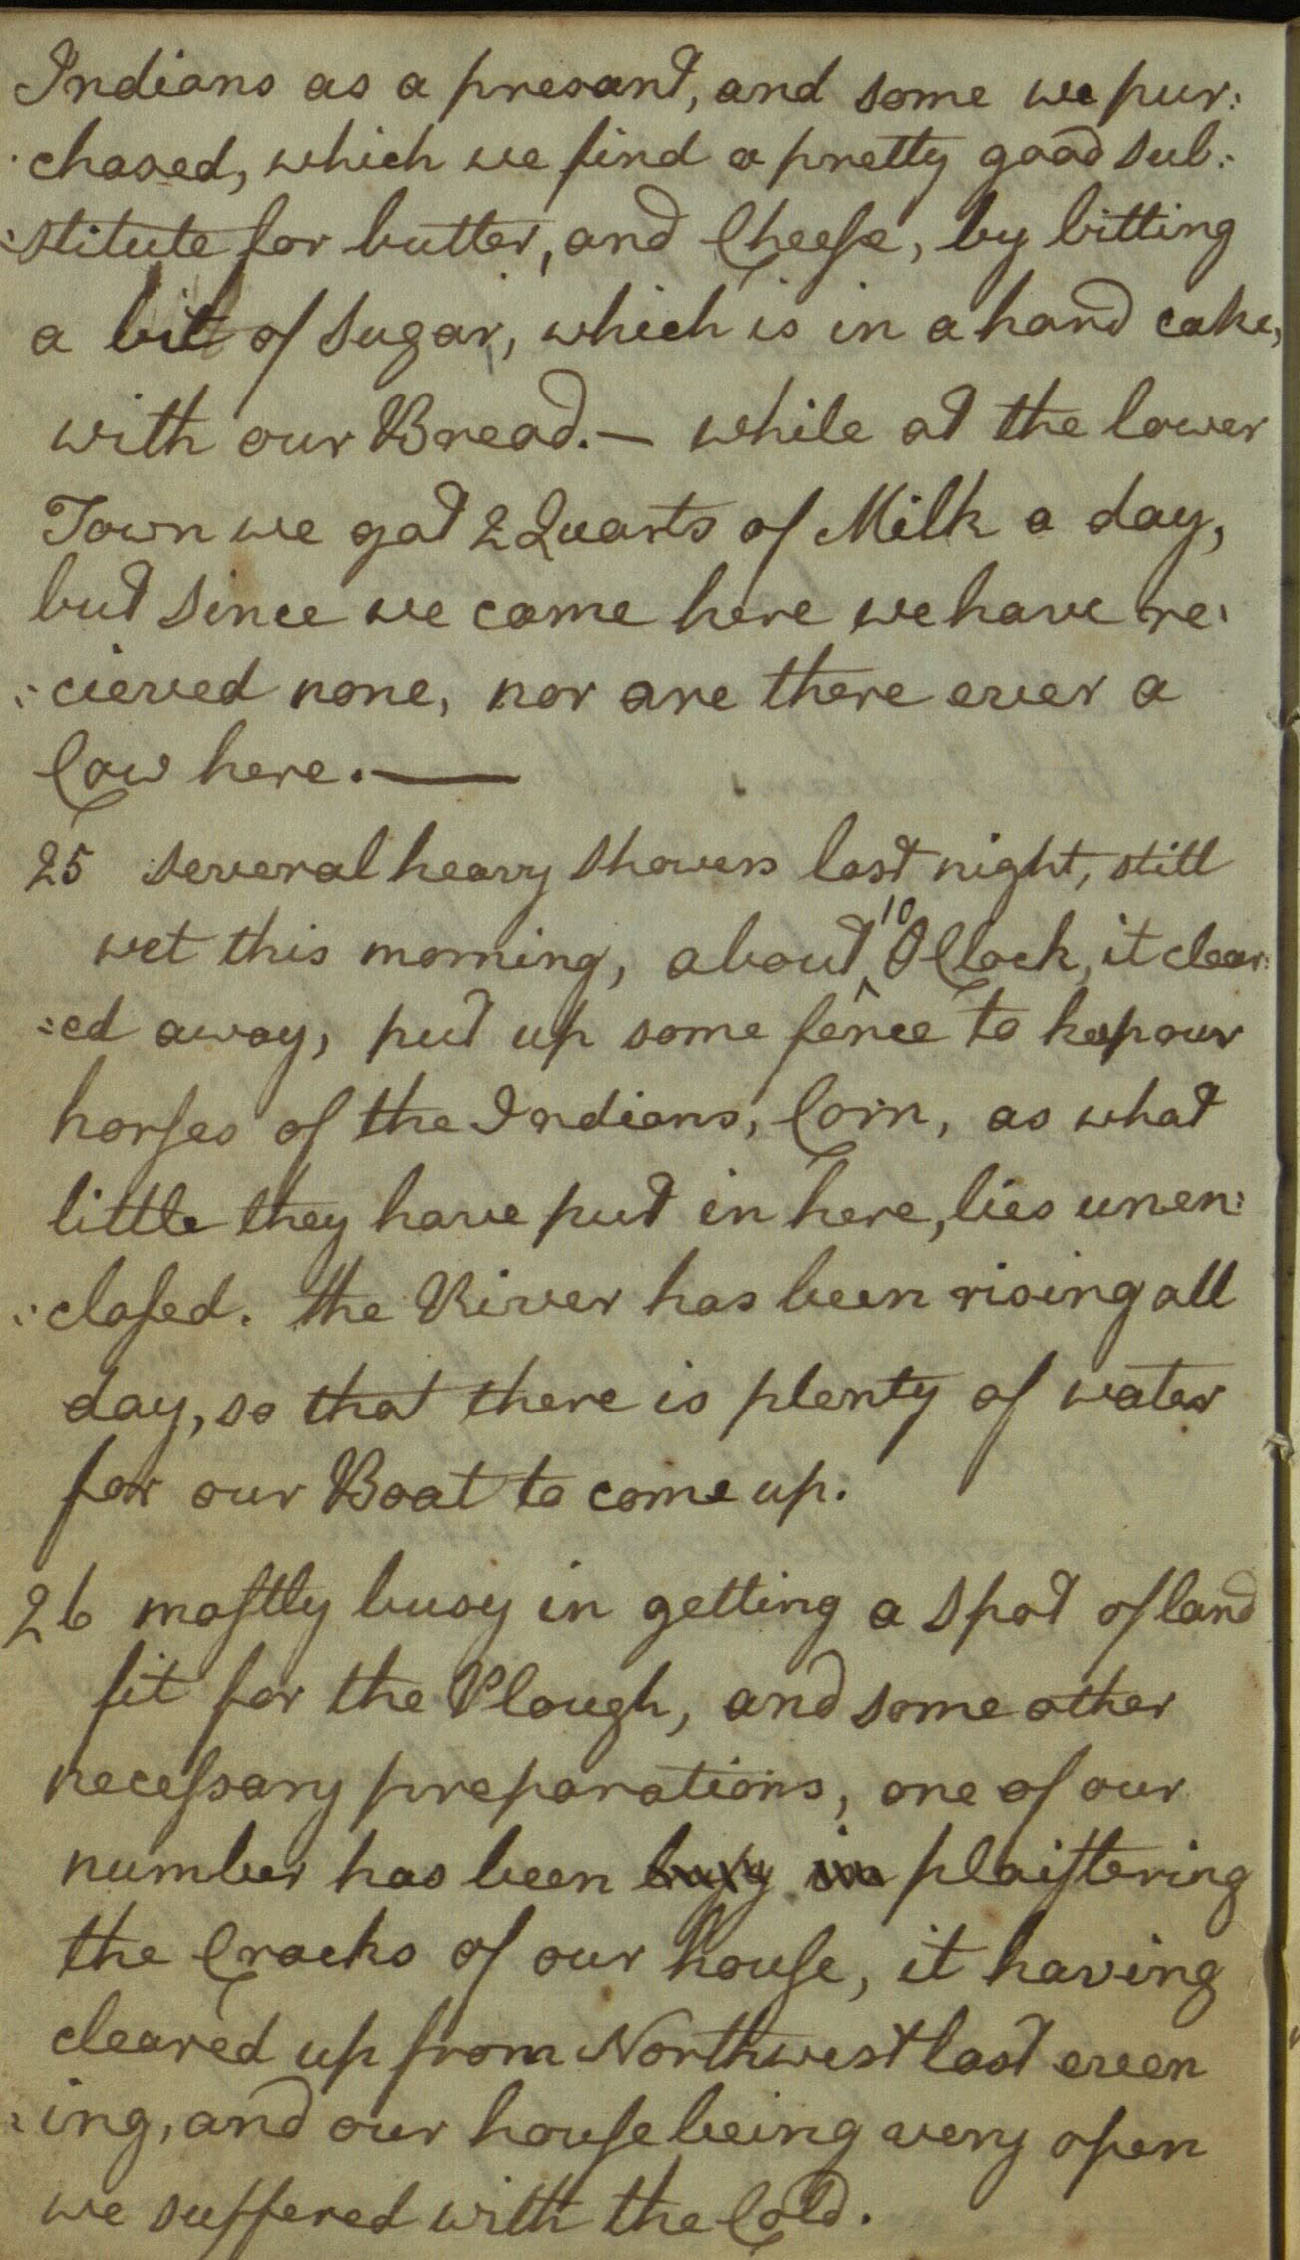 Indians as a presant, and some we pur:
:chased, which we find a pretty good sub:
:stitute for butter, and Cheeſe, by bitting
a bit of Sugar, which is in a hard cake,
with our Bread.— while at the lower
Town we got 2 Quarts of Milk a day,
but since we came here we have re:
:cieved none, nor are there ever a
Cow here.—
25 several heavy showers last night, still
wet this morning, about ^10 OClock, it clear:
:ed away, put up some fence to keep our
horſes of the Indians, Corn, as what
little they have put in here, lies unen:
:cloſed. the River has been rising all
day, so that there is plenty of water
for our Boat to come up.
26 moſtly busy in getting a spot of land
fit for the Plough, and some other
neceſsary preparations, one of our
number has been buſy in plaiſtering
the Cracks of our houſe, it having
cleared up from Northwest last even
:ing, and our houſe being very open
we suffered with the Cold.